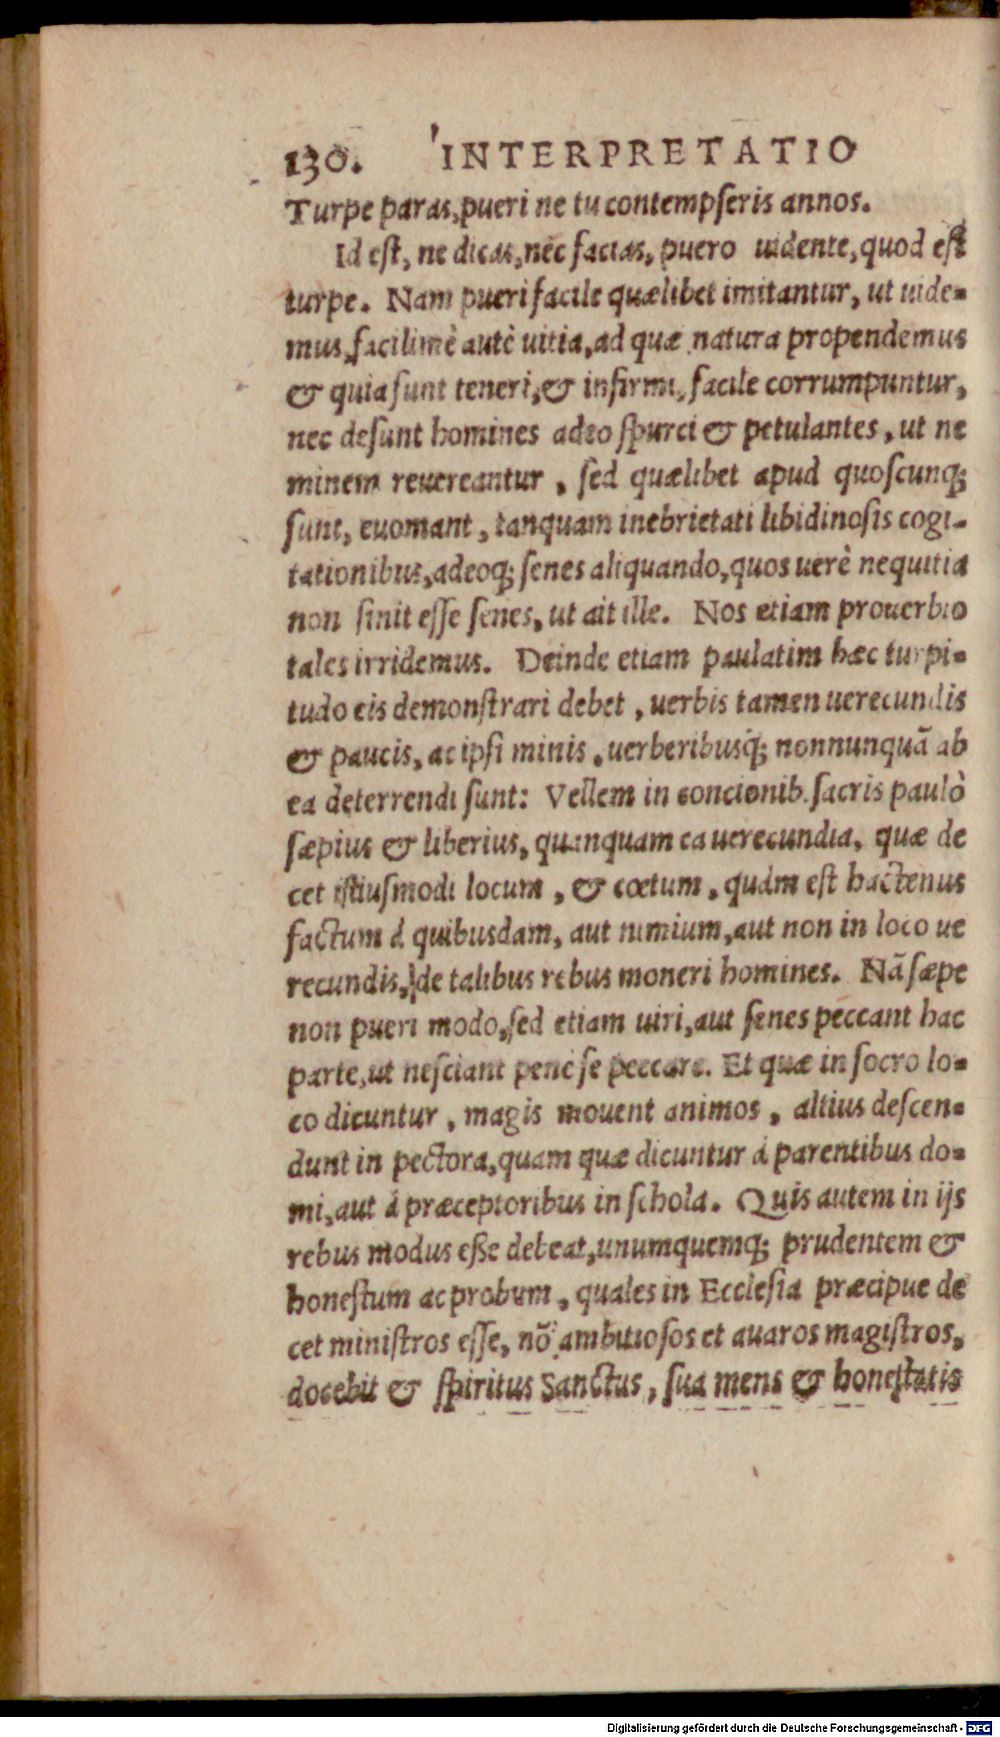 130. INTERPRETATIO
Turpe paras, pueri ne tu contempseris annos.
Id est, ne dicas, nec facias, puero uidente, quod est
turpe. Nam pueri facile quælibet imitantur, ut uide-
mus, facilimè autē uitia, ad quæ natura propendemus
& quia sunt teneri, & infirmi, facile corrumpuntur,
nec desunt homines adeo spurci & petulantes, ut ne
minem reuereantur, sed quælibet apud quoscunq;
sunt, euomant, tanquam inebrietati libidinosis cogi-
tationibus, adeoq; senes aliquando, quos uerè nequitia
non sinit esse senes, ut ait ille. Nos etiam prouerbio
tales irridemus. Deinde etiam paulatim hæc turpi-
tudo eis demonstrari debet, uerbis tamen uerecundis
& paucis, ac ipsi minis, uerberibusq; nonnunquā ab
ea deterrendi sunt: Vellem in concionib. sacris paulò
sæpius & liberius, quanquam ea uerecundia, quæ de
cet istiusmodi locum, & cœtum, quàm est hactenus
factum à quibusdam, aut nimium, aut non in loco ue
recundis, de talibus rebus moneri homines. Nā sæpe
non pueri modo, sed etiam uiri, aut senes peccant hac
parte, ut nesciant penè se peccare. Et quæ in socro lo-
co dicuntur, magis mouent animos, altius descen-
dunt in pectora, quam quæ dicuntur à parentibus do-
mi, aut à præceptoribus in schola. Quis autem in ijs
rebus modus esse debeat, unumquemq; prudentem &
honestum ac probum, quales in Ecclesia præcipue de
cet ministros esse, nō ambitiosos et auaros magistros,
docebit & spiritus Sanctus, sua mens & honestatis
Digitalisierung gefördert durch die Deutsche Forschungsgemeinschaft - DFG